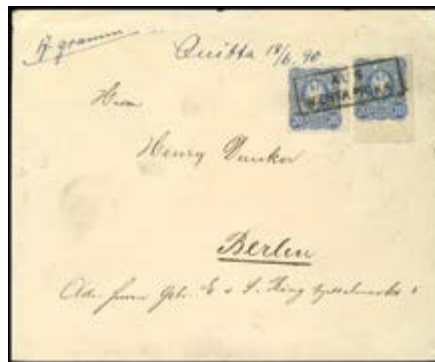 17 gramm
Quitta 18/6. 90
AUS
WESTAFRIKA
20 20
Herrn
Henry Dunker
Berlin
Adr. Herrn Gebr.